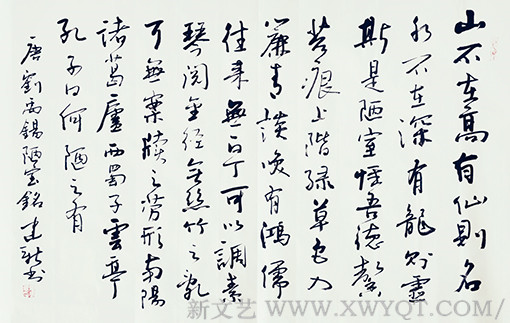 山不在高有仙則名
水不在深有龍則靈
斯是陋室惟吾德馨
苔痕上階緑草色入
簾青談笑有鴻儒
往来無白丁可以調素
琴阅金经無絲竹之乱
耳無案牘之劳形南陽
諸葛廬西蜀子雲亭
孔子曰何陋之有
唐劉禹錫陋室銘 建新书
新文艺 WWW.XWYQT.COM/